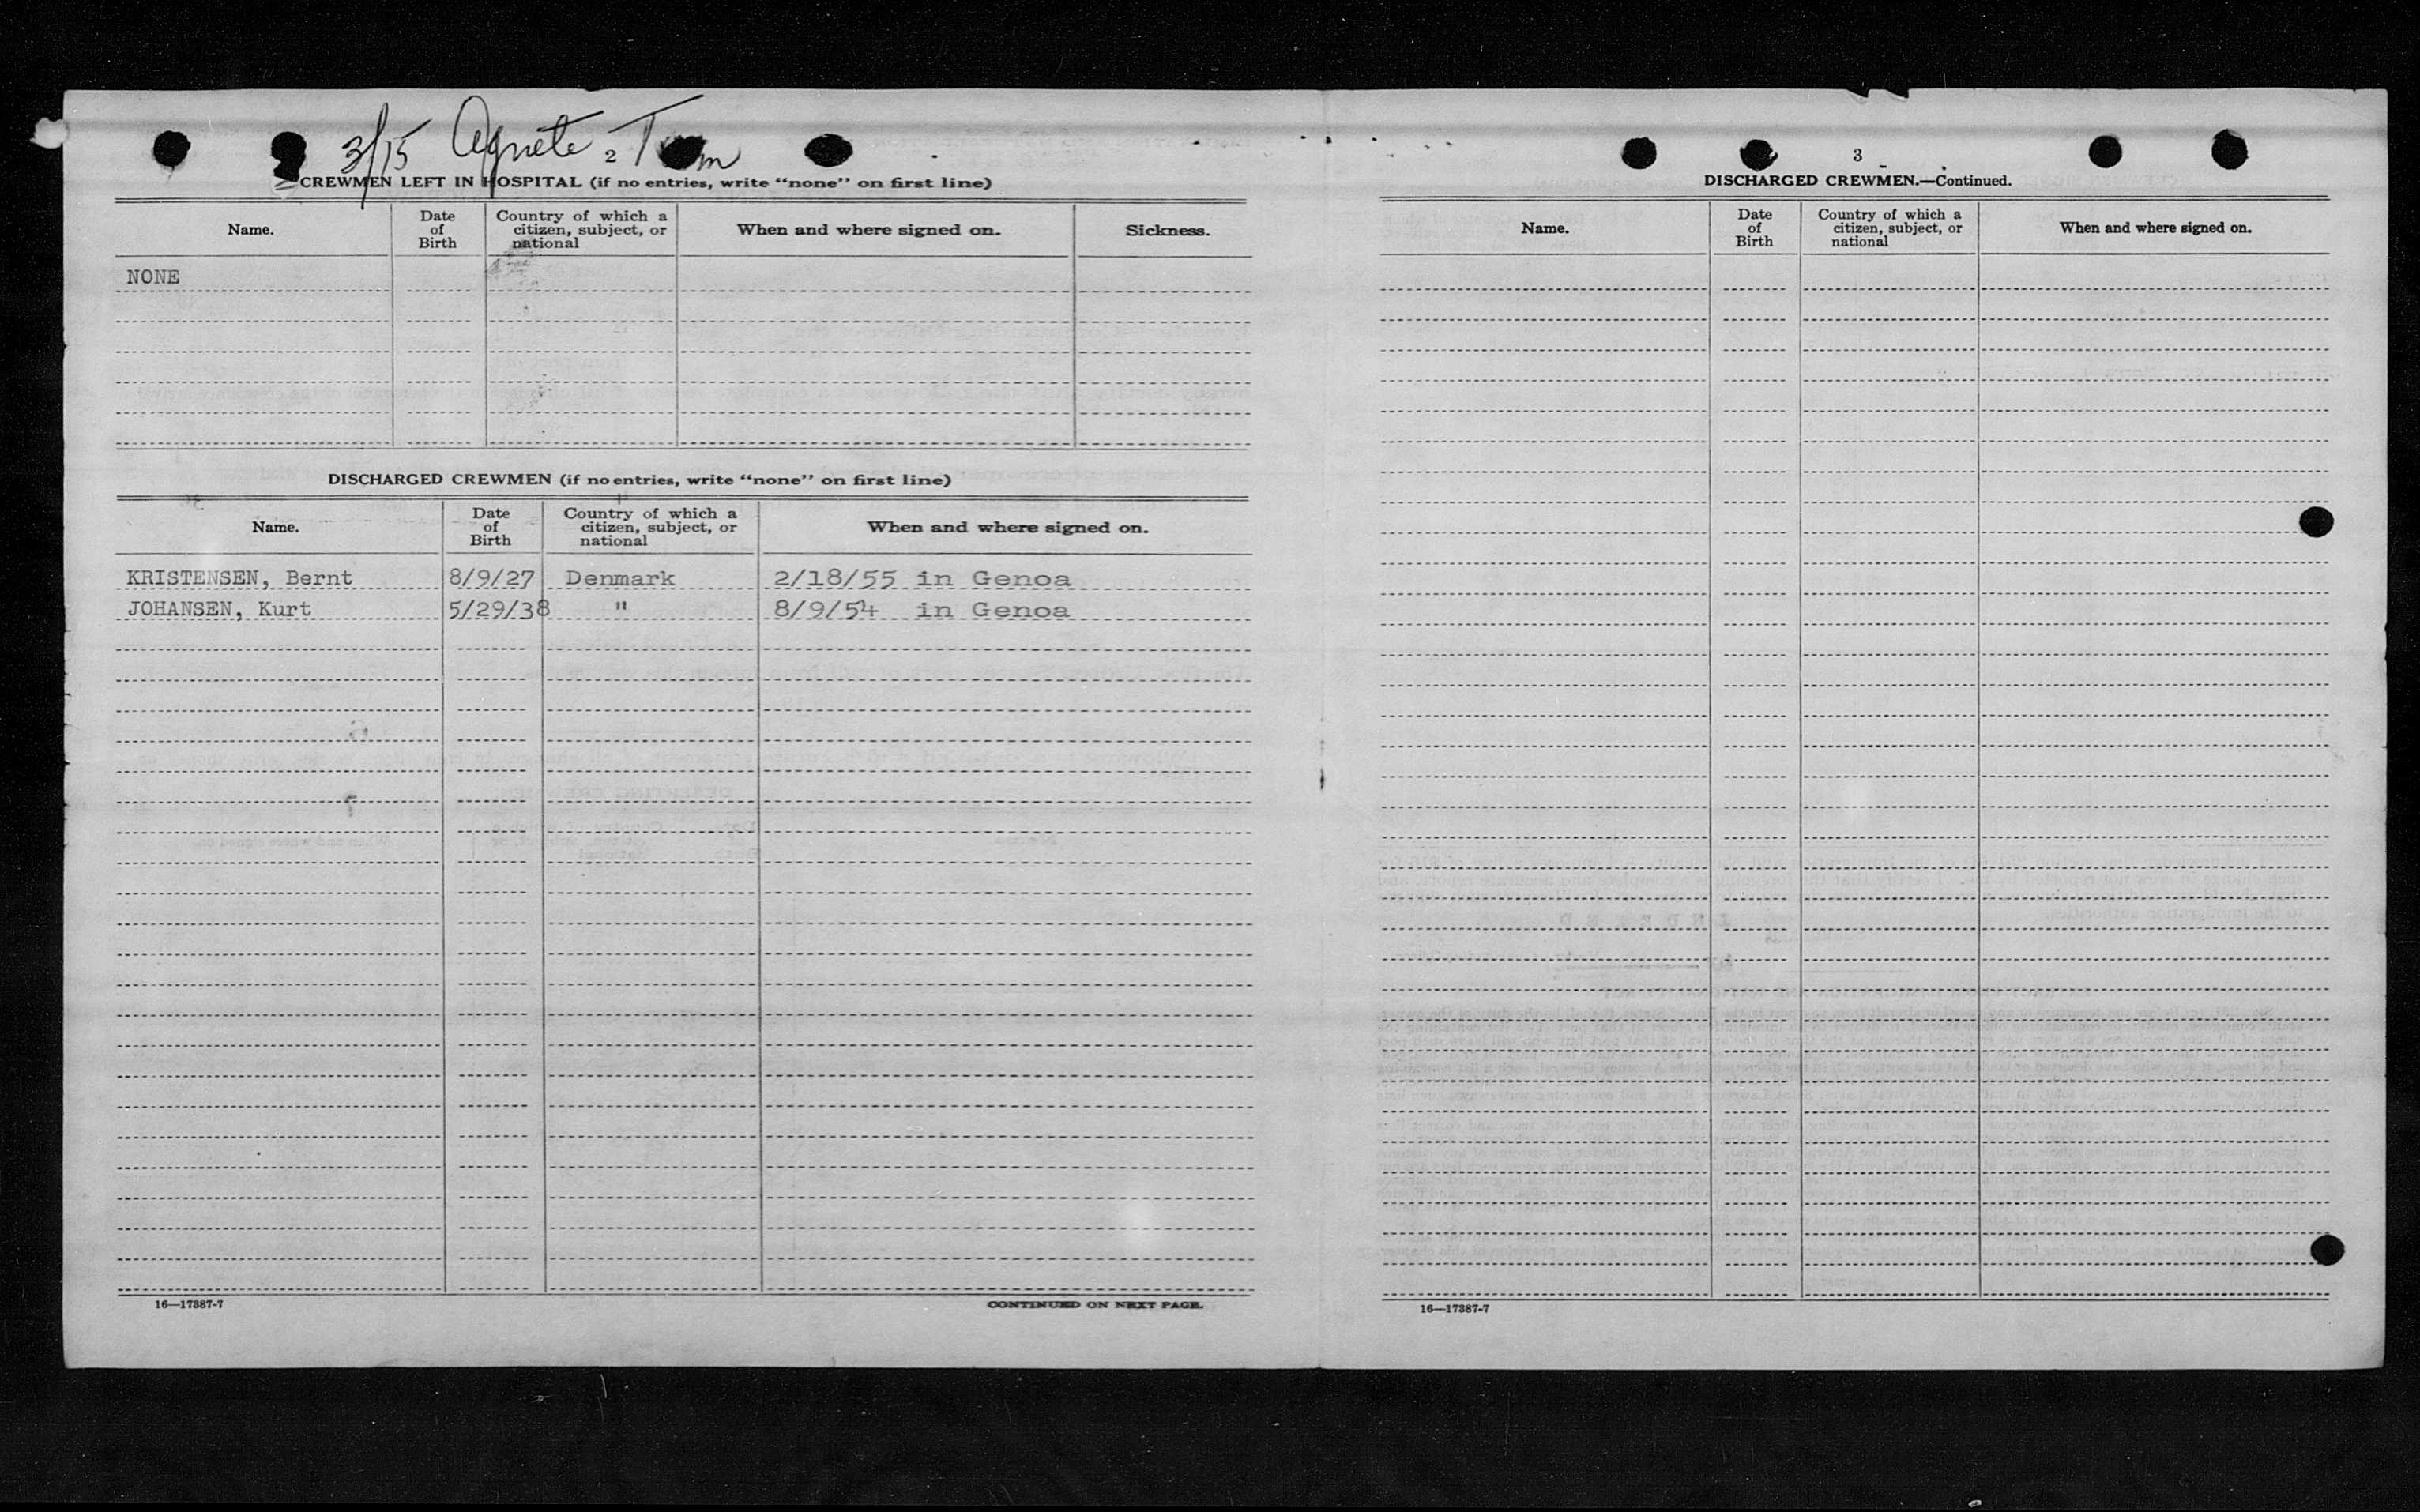 3/15 Agnete
2
CREWMEN LEFT IN HOSPITAL (if no entries, write “none” on first line)
Name.
Date of Birth
Country of which a citizen, subject, or national
When and where signed on.
Sickness.
NONE
DISCHARGED CREWMEN (if no entries, write “none” on first line)
Name.
Date of Birth
Country of which a citizen, subject, or national
When and where signed on.
KRISTENSEN, Bernt 8/9/27 Denmark 2/18/55 in Genoa
JOHANSEN, Kurt 5/29/38 " 8/9/54 in Genoa
16—17387-7
CONTINUED ON NEXT PAGE.
3
DISCHARGED CREWMEN.—Continued.
Name.
Date of Birth
Country of which a citizen, subject, or national
When and where signed on.
16—17387-7